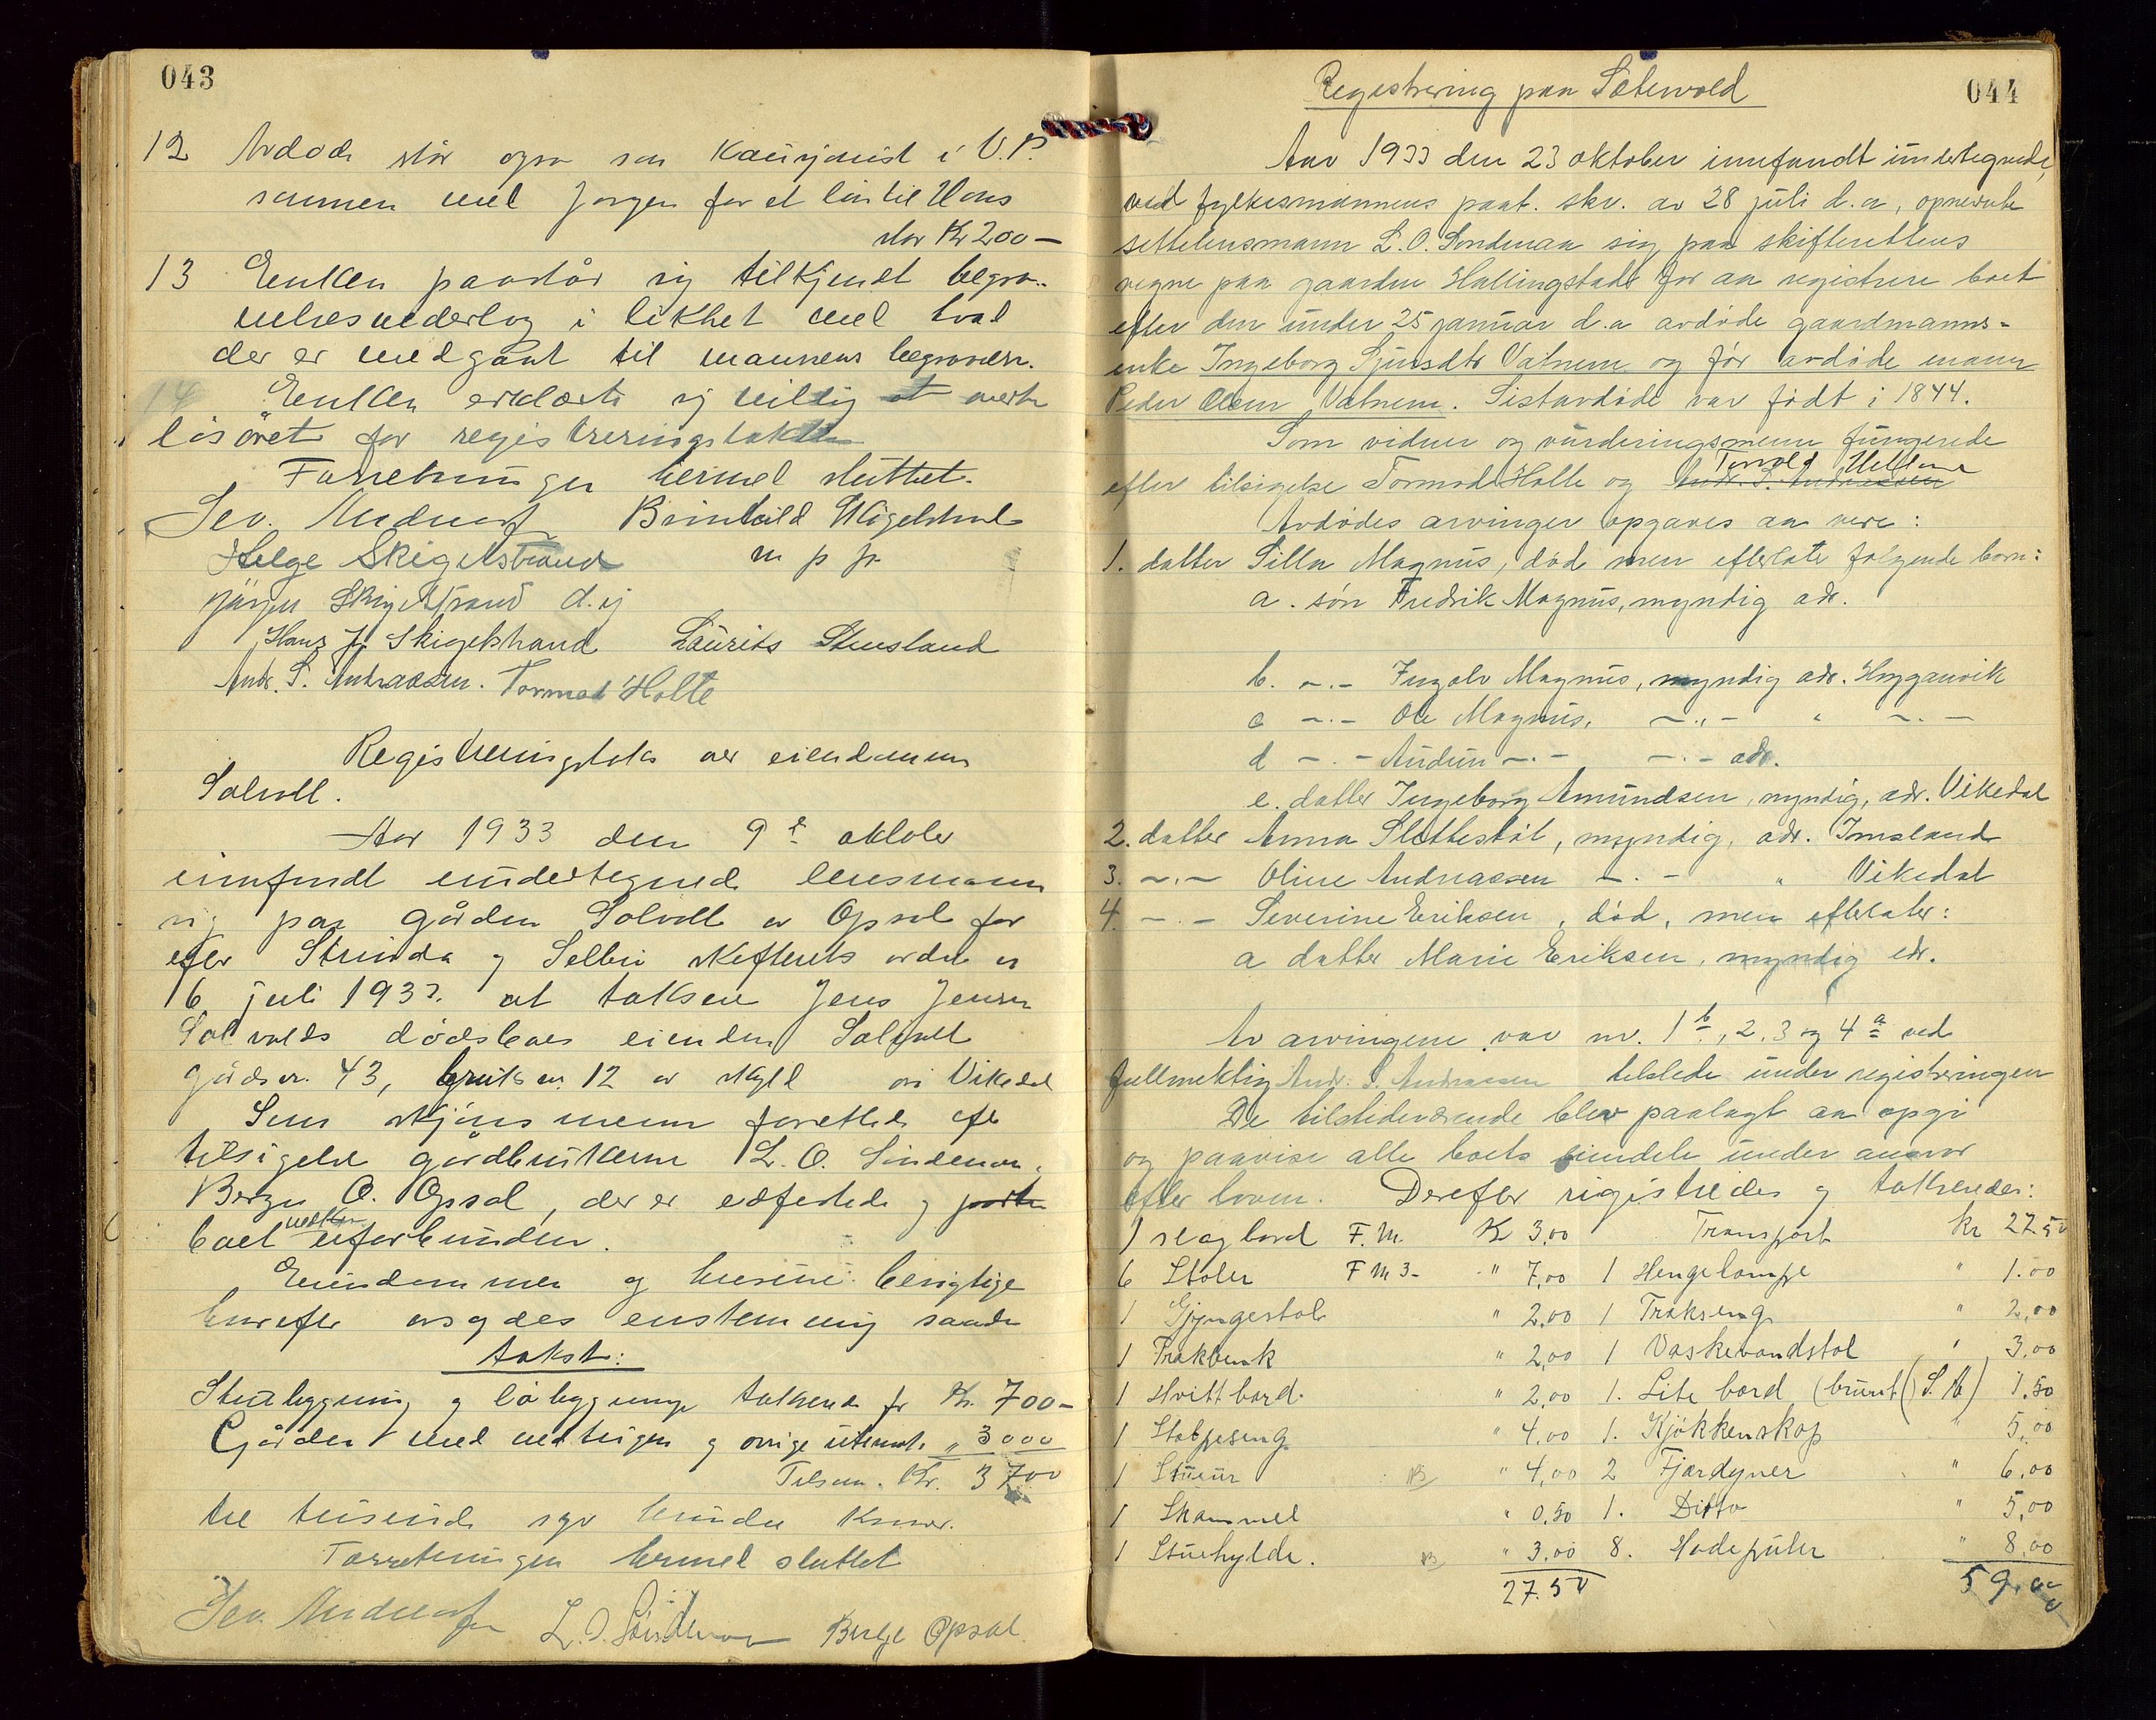 043
12 Avdøde står også som Kausjonist i V.P.
sammen med Jørgen for et lån til Hans
stor Kr 200 —
13 Enken paastår sig tilkjendt begra-
velsesvederlag i likhet med hvad
der er medgåat til mannens begravelse.
14 Enken erklærte sig villig at overta
løsøret for registreringstaksten
Forretningen hermed sluttet.
Sev. Andreassen Brinhild Skigelstrand
Helge Skigelstrand m p p.
Jørgen Skigelstrand d. y
Hans J. Skigelstrand Laurits Stensland
Andr. S. Andreassen. Tormod Holte
Registreringstakst over eiendommen
Solvoll.
Aar 1933 den 9de oktober
innfandt undertegnede lensmann
sig paa gården Solvoll av Opsal for
efter Strinda og Selbu skifteretts ordre av
16 juli 1933 at taksere Jens Jensen
Solvolds dødsboes eiendom Solvoll
gårdsnr. 43, bruksnr. 12 av skyld i Vikedal
Som skjønsmenn forrettet efter
tilsigelse gårdbrukerne L. O. Søndenaa,
Berge O. Opsal, der er edfestede og
boet uforbunden.
Eiendommen og husene besigtiges
hvorefter avgaes enstemmig saadan
takst:
Stuebygning og løbygning takseret for Kr. 700 —
Gården med utmark " 3000
Tilsam. Kr. 3700
tre tusinde syv hundre Kroner.
Forretningen hermed sluttet
Sev. Andreassen L. O. Søndenaa Berge Opsal
044
Registrering paa Sætervold
Aar 1933 den 23 oktober innfandt undertegnede,
ved fylkesmannens paat. skr. av 28 juli d.a, opnevnte
settelensmann L. O. Søndenaa sig paa skifterettens
vegne paa gaarden Hallingstad for aa registrere boet
efter den under 25 januar d.a avdøde gaardmanns-
enke Ingeborg Sjursdtr Vatnem og før avdøde mann
Peder Olsen Vatnem. Sistavdøde var født i 1844.
Som vidner og vurderingsmenn fungerede
efter tilsigelse Tormod Holte og Andr. S. Andreassen Torvald
Avdødes arvinger opgaves aa være:
1. datter Silla Magnus, død men efterlate følgende born:
a. søn Fredrik Magnus, myndig adr.
b. -.- Ingolv Magnus, myndig adr. Høgganvik
c -.- Ole Magnus, -.,- " -.-
d -.- Audun -.- -.- adr.
e. datter Ingeborg Amundsen, myndig, adr. Vikedal
2. datter Anna Slettestøl, myndig, adr. Imsland
3. -.- Oline Andreassen -.- " Vikedal
4. -.- Severine Eriksen, død, men efterlater:
a datter Marie Eriksen, myndig adr.
Av arvingene var nr. 1 b, 2, 3 og 4 a ved
fullmektig Andr. S. Andreassen tilstede under registreringen
De tilstedeværende blev paalagt aa opgi
og paavise alle boets eiendele under ansvar
efter loven. Derefter registredes og takseredes:
1 slagbord F. M. Kr 3,00 Transport kr 27 50
6 Stoler F M 3- " 7,00 1 Hengelampe " 1.00
1 Gjyngestol " 2,00 1 Trækseng " 2,00
1 Trækbenk " 2,00 1 Vaskevandstol " 3,00
1 Hvitt bord. " 2,00 1. Lite bord (brunt) (S. M) 1,50
1 Stolpeseng " 4,00 1. Kjøkkenskap " 5,00
1 Stueur " 4,00 2 Fjærdyner " 6,00
1 Skammel " 0,50 1. Ditto " 5,00
1 Stuehylde. " 3,00 8. Hodeputer " 8,00
27.50 59,00